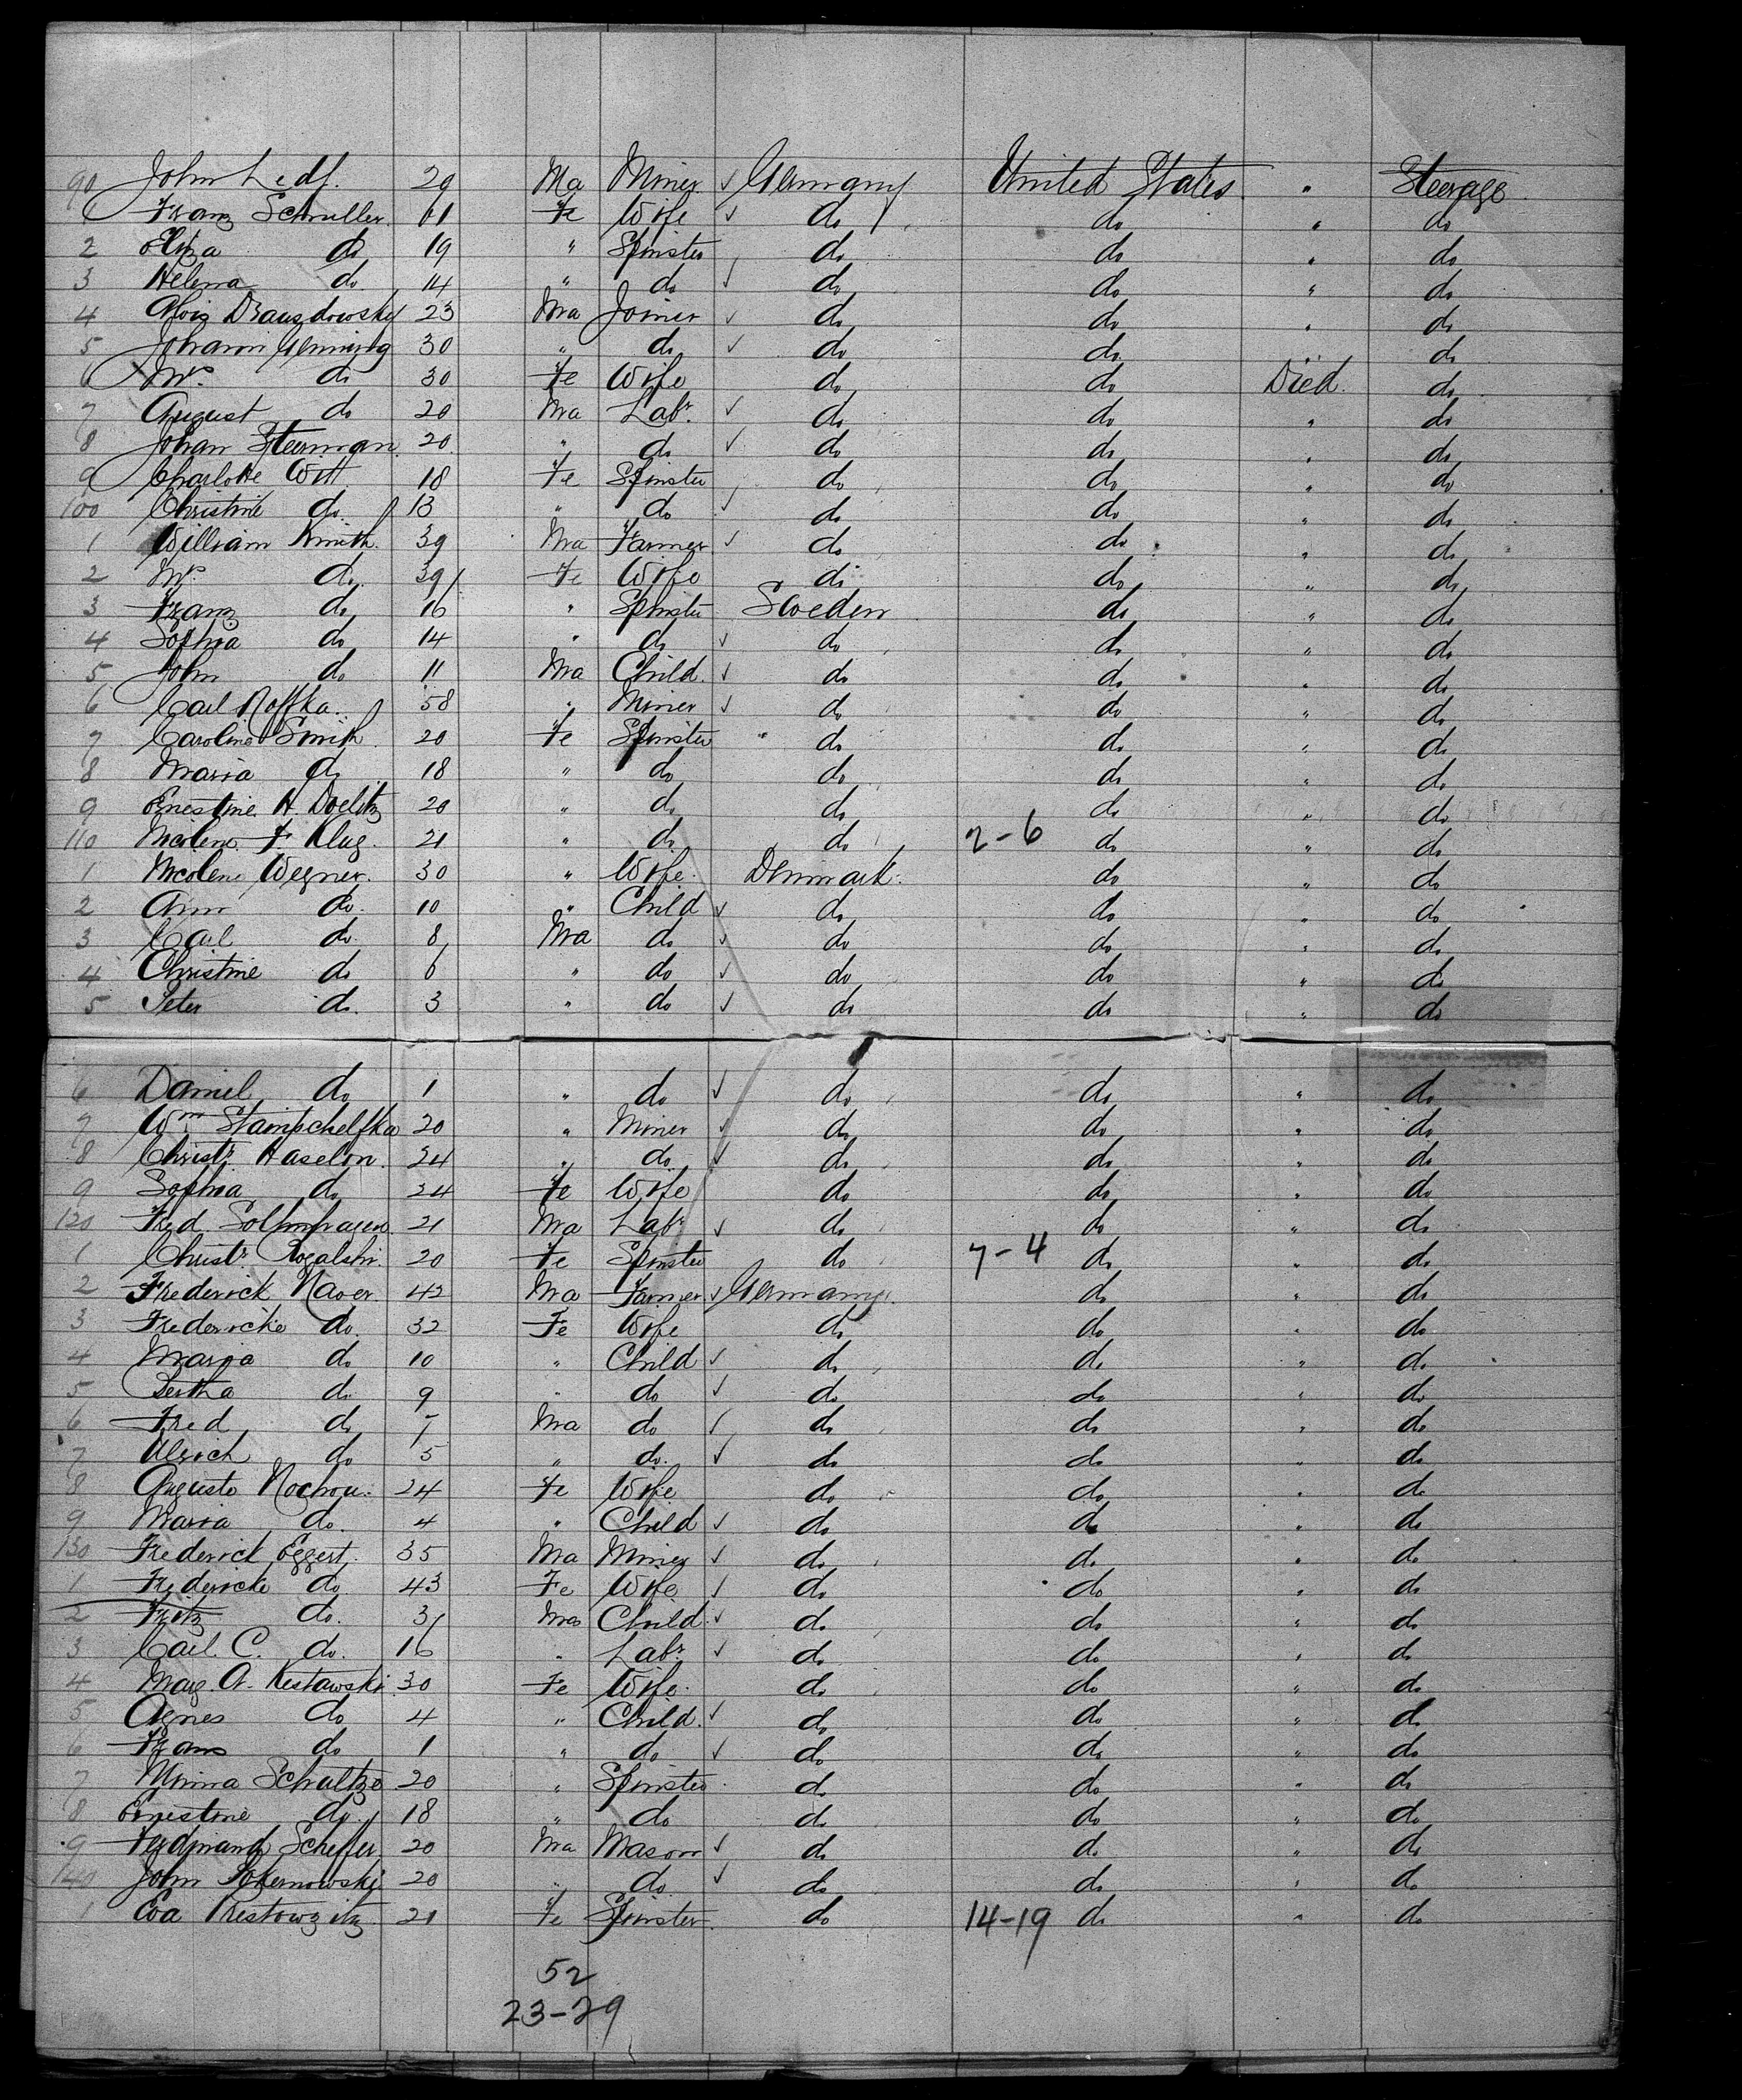 90 John Ledf. 29 Ma Miner ✓ Germany United States " Steerage
1 Franz Schuller 61 Fe Wife ✓ do do " do
2 Eliza do 19 " Spinster do do " do
3 Helena do 14 " do ✓ do do " do
4 Alois Drauzdowsky 23 Ma Joiner ✓ do do " do
5 Johann Genning 30 " do ✓ do do " do
6 Mrs do 30 Fe Wife do do Died do
7 August do 20 Ma Labr ✓ do do " do
8 Johan Steinman 20 " do ✓ do do " do
9 Charlotte Witt 18 Fe Spinster do do " do
100 Christine do 13 " do ✓ do do " do
1 William Smith 39 Ma Farmer ✓ do do " do
2 Mrs do 39 Fe Wife do do " do
3 Franz do 16 " Spinster Sweden do " do
4 Sophia do 14 " do ✓ do do " do
5 John do 11 Ma Child ✓ do do " do
6 Carl Roffka 58 " Miner ✓ do do " do
7 Caroline Smith 20 Fe Spinster " do do " do
8 Maria do 18 " do do do " do
9 Ernestine H. Doelitz 20 " do do do " do
110 F Klug 21 " do do 2-6 do " do
1 Nicolene Wegner 30 " Wife Denmark do " do
2 Ann do 10 " Child ✓ do do " do
3 Carl do 8 Ma do ✓ do do " do
4 Christine do 6 " do ✓ do do " do
5 Peter do 3 " do ✓ do do " do
6 Daniel do 1 " do ✓ do do " do
7 Wm Stampchelfka 20 " Miner ✓ do do " do
8 Christr Haselon 24 " do ✓ do do " do
9 Sophia do 24 Fe Wife do do " do
120 Fred 21 Ma Labr ✓ do do " do
1 Christr Rogalski 20 Fe Spinster do 7-4 do " do
2 Frederick Naver 42 Ma Farmer ✓ Germany do " do
3 Fredericke do 32 Fe Wife do do " do
4 Maria do 10 " Child ✓ do do " do
5 Bertha do 9 " do ✓ do do " do
6 Fred do 7 Ma do ✓ do do " do
7 Ulrich do 5 " do ✓ do do " do
8 Auguste Nochou 24 Fe Wife do do " do
9 Maria do 4 " Child ✓ do do " do
130 Frederick Eggert 35 Ma Miner ✓ do do " do
1 Fredericke do 43 Fe Wife ✓ do do " do
2 Fritz do 3 Ma Child ✓ do do " do
3 Carl C. do 16 " Labr ✓ do do " do
4 Marg. A. Kestawski 30 Fe Wife do do " do
5 Agnes do 4 " Child ✓ do do " do
6 Franz do 1 " do ✓ do do " do
7 Minna Schultze 20 " Spinster do do " do
8 Ernestine do 18 " do do do " do
9 Ferdinand Scheffer 20 Ma Mason ✓ do do " do
140 John 20 " do ✓ do do " do
1 Eva Prestowzitz 21 Fe Spinster do 14-19 do " do
52
23-29